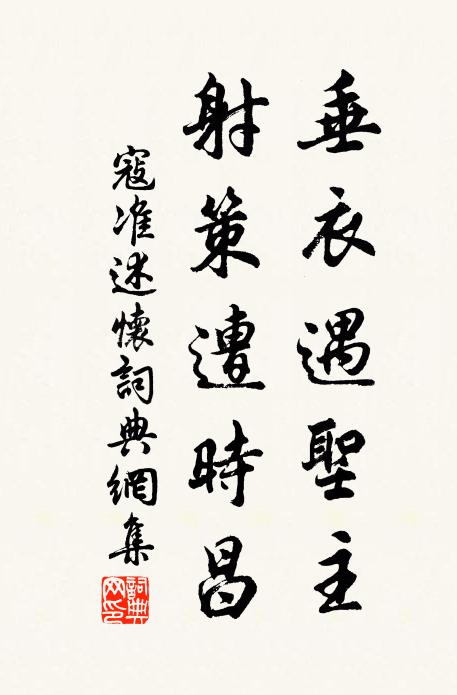 垂衣遇聖主
射策遭時昌
寇准述懷詞典網集
詞典網印